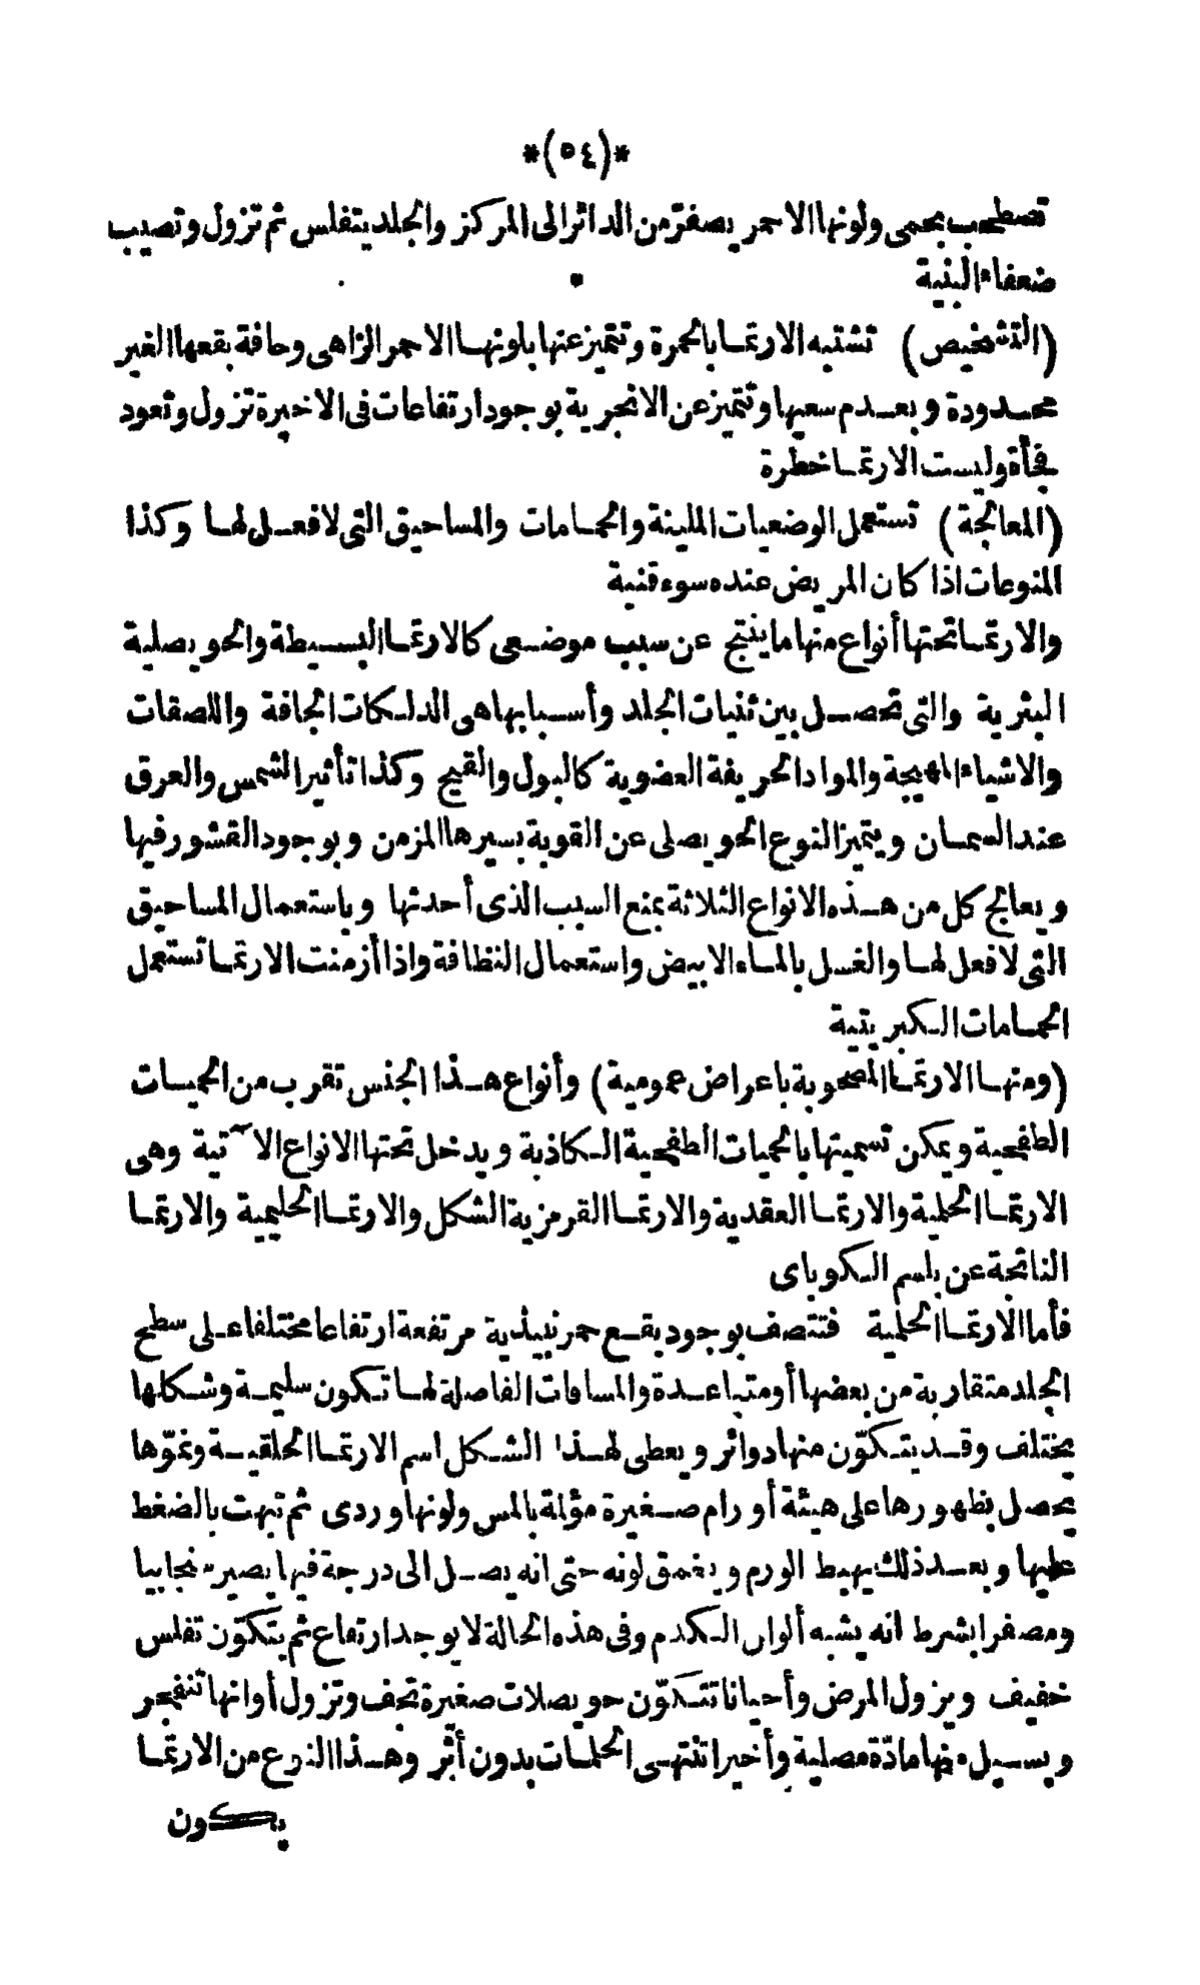 *(٥٤)*
تصطحب بحمى ولونها الاحمر يصفر من الدائر الى المركز والجلد يتفلس ثم تزول وتصيب
ضعفاء البنية
(التشخيص) تشتبه الارتما بالحمرة وتتميز عنها بلونها الاحمر الزاهى وحافة بقعها الغير
محدودة وبعدم سعيها وتتميز عن الانجرية بوجود ارتفاعات فى الاخيرة تزول وتعود
فجأة وليست الارتما خطرة
(المعالجة) تستعمل الوضعيات الملينة والحمامات والمساحيق التى لا فعل لها وكذا
المنوعات اذا كان المريض عنده سوء قنية
والارتما تحتها أنواع منها ما ينتج عن سبب موضعى كالارتما البسيطة والحويصلية
البثرية والتى تحصل بين ثنيات الجلد وأسبابها هى الدلكات الجافة واللصقات
والاشياء المهيجة والمواد الحريفة العضوية كالبول والقيح وكذا تأثير الشمس والعرق
عند السمان ويتميز النوع الحويصلى عن القوبة بسيرها المزمن وبوجود القشور فيها
ويعالج كل من هذه الانواع الثلاثة بمنع السبب الذى أحدثها وباستعمال المساحيق
التى لا فعل لها والغسل بالماء الابيض واستعمال النظافة واذا أزمنت الارتما تستعمل
الحمامات الكبريتية
(ومنها الارتما المصحوبة باعراض عمومية) وأنواع هذا الجنس تقرب من الحميات
الطفحية ويمكن تسميتها بالحميات الطفحية الكاذبة ويدخل تحتها الانواع الآتية وهى
الارتما الحلمية والارتما العقدية والارتما القرمزية الشكل والارتما الحليمية والارتما
الناتجة عن بلسم الكوباى
فأما الارتما الحلمية فتتصف بوجود بقع حمر نبيذية مرتفعة ارتفاعا مختلفا على سطح
الجلد متقاربة من بعضها أو متباعدة والمسافات الفاصلة لها تكون سليمة وشكلها
يختلف وقد يتكوّن منها دوائر ويعطى لهذا الشكل اسم الارتما الحلقية ونموّها
يحصل بظهورها على هيئة أورام صغيرة مؤلمة بالمس ولونها وردى ثم تبهت بالضغط
عليها وبعد ذلك يهبط الورم ويغمق لونه حتى انه يصل الى درجة فيها يصير سنجابيا
ومصفرا بشرط انه يشبه ألوان الكدم وفى هذه الحالة لا يوجد ارتفاع ثم يتكوّن تفلس
خفيف ويزول المرض وأحيانا تتكوّن حويصلات صغيرة تجف وتزول أوانها تنفجر
ويسيل منها مادّة مصلية وأخيرا تنتهى الحلمات بدون أثر وهذا النوع من الارتما
يكون